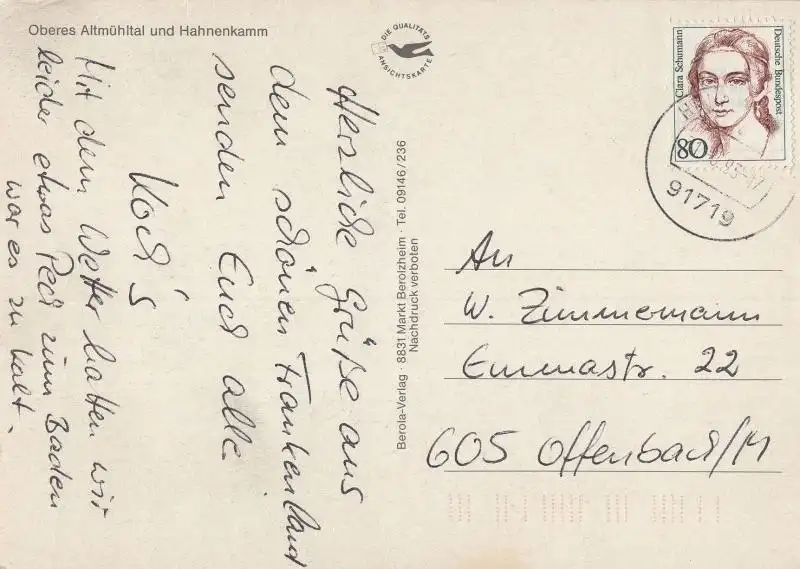 Oberes Altmühltal und Hahnenkamm
DIE QUALITÄTS
ANSICHTSKARTE
Herzliche Grüße aus
dem schönen Frankenland
senden Euch alle
Koch's
Mit dem Wetter hatten wir
leider etwas Pech zum Baden
war es zu kalt.
Berola-Verlag · 8831 Markt Berolzheim · Tel. 09146/236
Nachdruck verboten
Clara Schumann
Deutsche Bundespost
80
91719
An
W. Zimmermann
Emmastr. 22
605 Offenbach/M